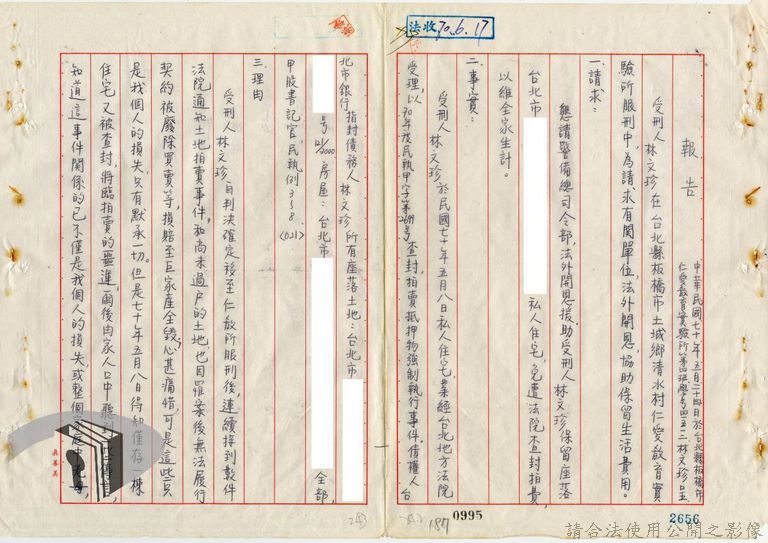 法收70.6.17
報告
中華民國七十年五月二十四日於台北縣板橋市
仁愛教育實驗所第四班學號四五二林文珍呈
受刑人林文珍在台北縣板橋市土城鄉清水村仁愛敎育實
驗所服刑中,為請求有關單位,法外開恩,協助保留生活費用。
一、請求:
懇請警備總司令部,法外開恩,援助受刑人林文珍保留座落
台北市
私人住宅,免遭法院查封拍賣,
以維全家生計。
二、事實:
受刑人林文珍於民國七十年五月八日私人住宅,業經台北地方法院
受理,以70年度民執甲字第2699號查封,拍賣抵押物強制執行事件。債權人台
北市銀行指封債務人林文珍所有座落土地:台北市
號21/2000房屋:台北市
全部,
甲股書記官,民執例358(021)
三、理由
受刑人林文珍,自判決確定移至仁敎所服刑後,連續接到數件
法院通知土地拍賣事件。和尚未過戶的土地,也因罪案後無法履行
契約被廢除買賣等,損賠至巨家產全毀,心甚痛惜,可是這些只
是我個人的損失,只有默承一切。但是七十年五月八日得知僅存一棟
住宅又被查封,將臨拍賣的噩運,爾後由家人口中聽到
知道這事件關係的已不僅是我個人的損失,或整個家庭
真善美
243
187
0995
2656
請合法使用公開之影像